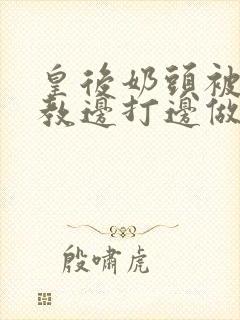 皇後奶頭被
教邊打邊做
殷嘯虎